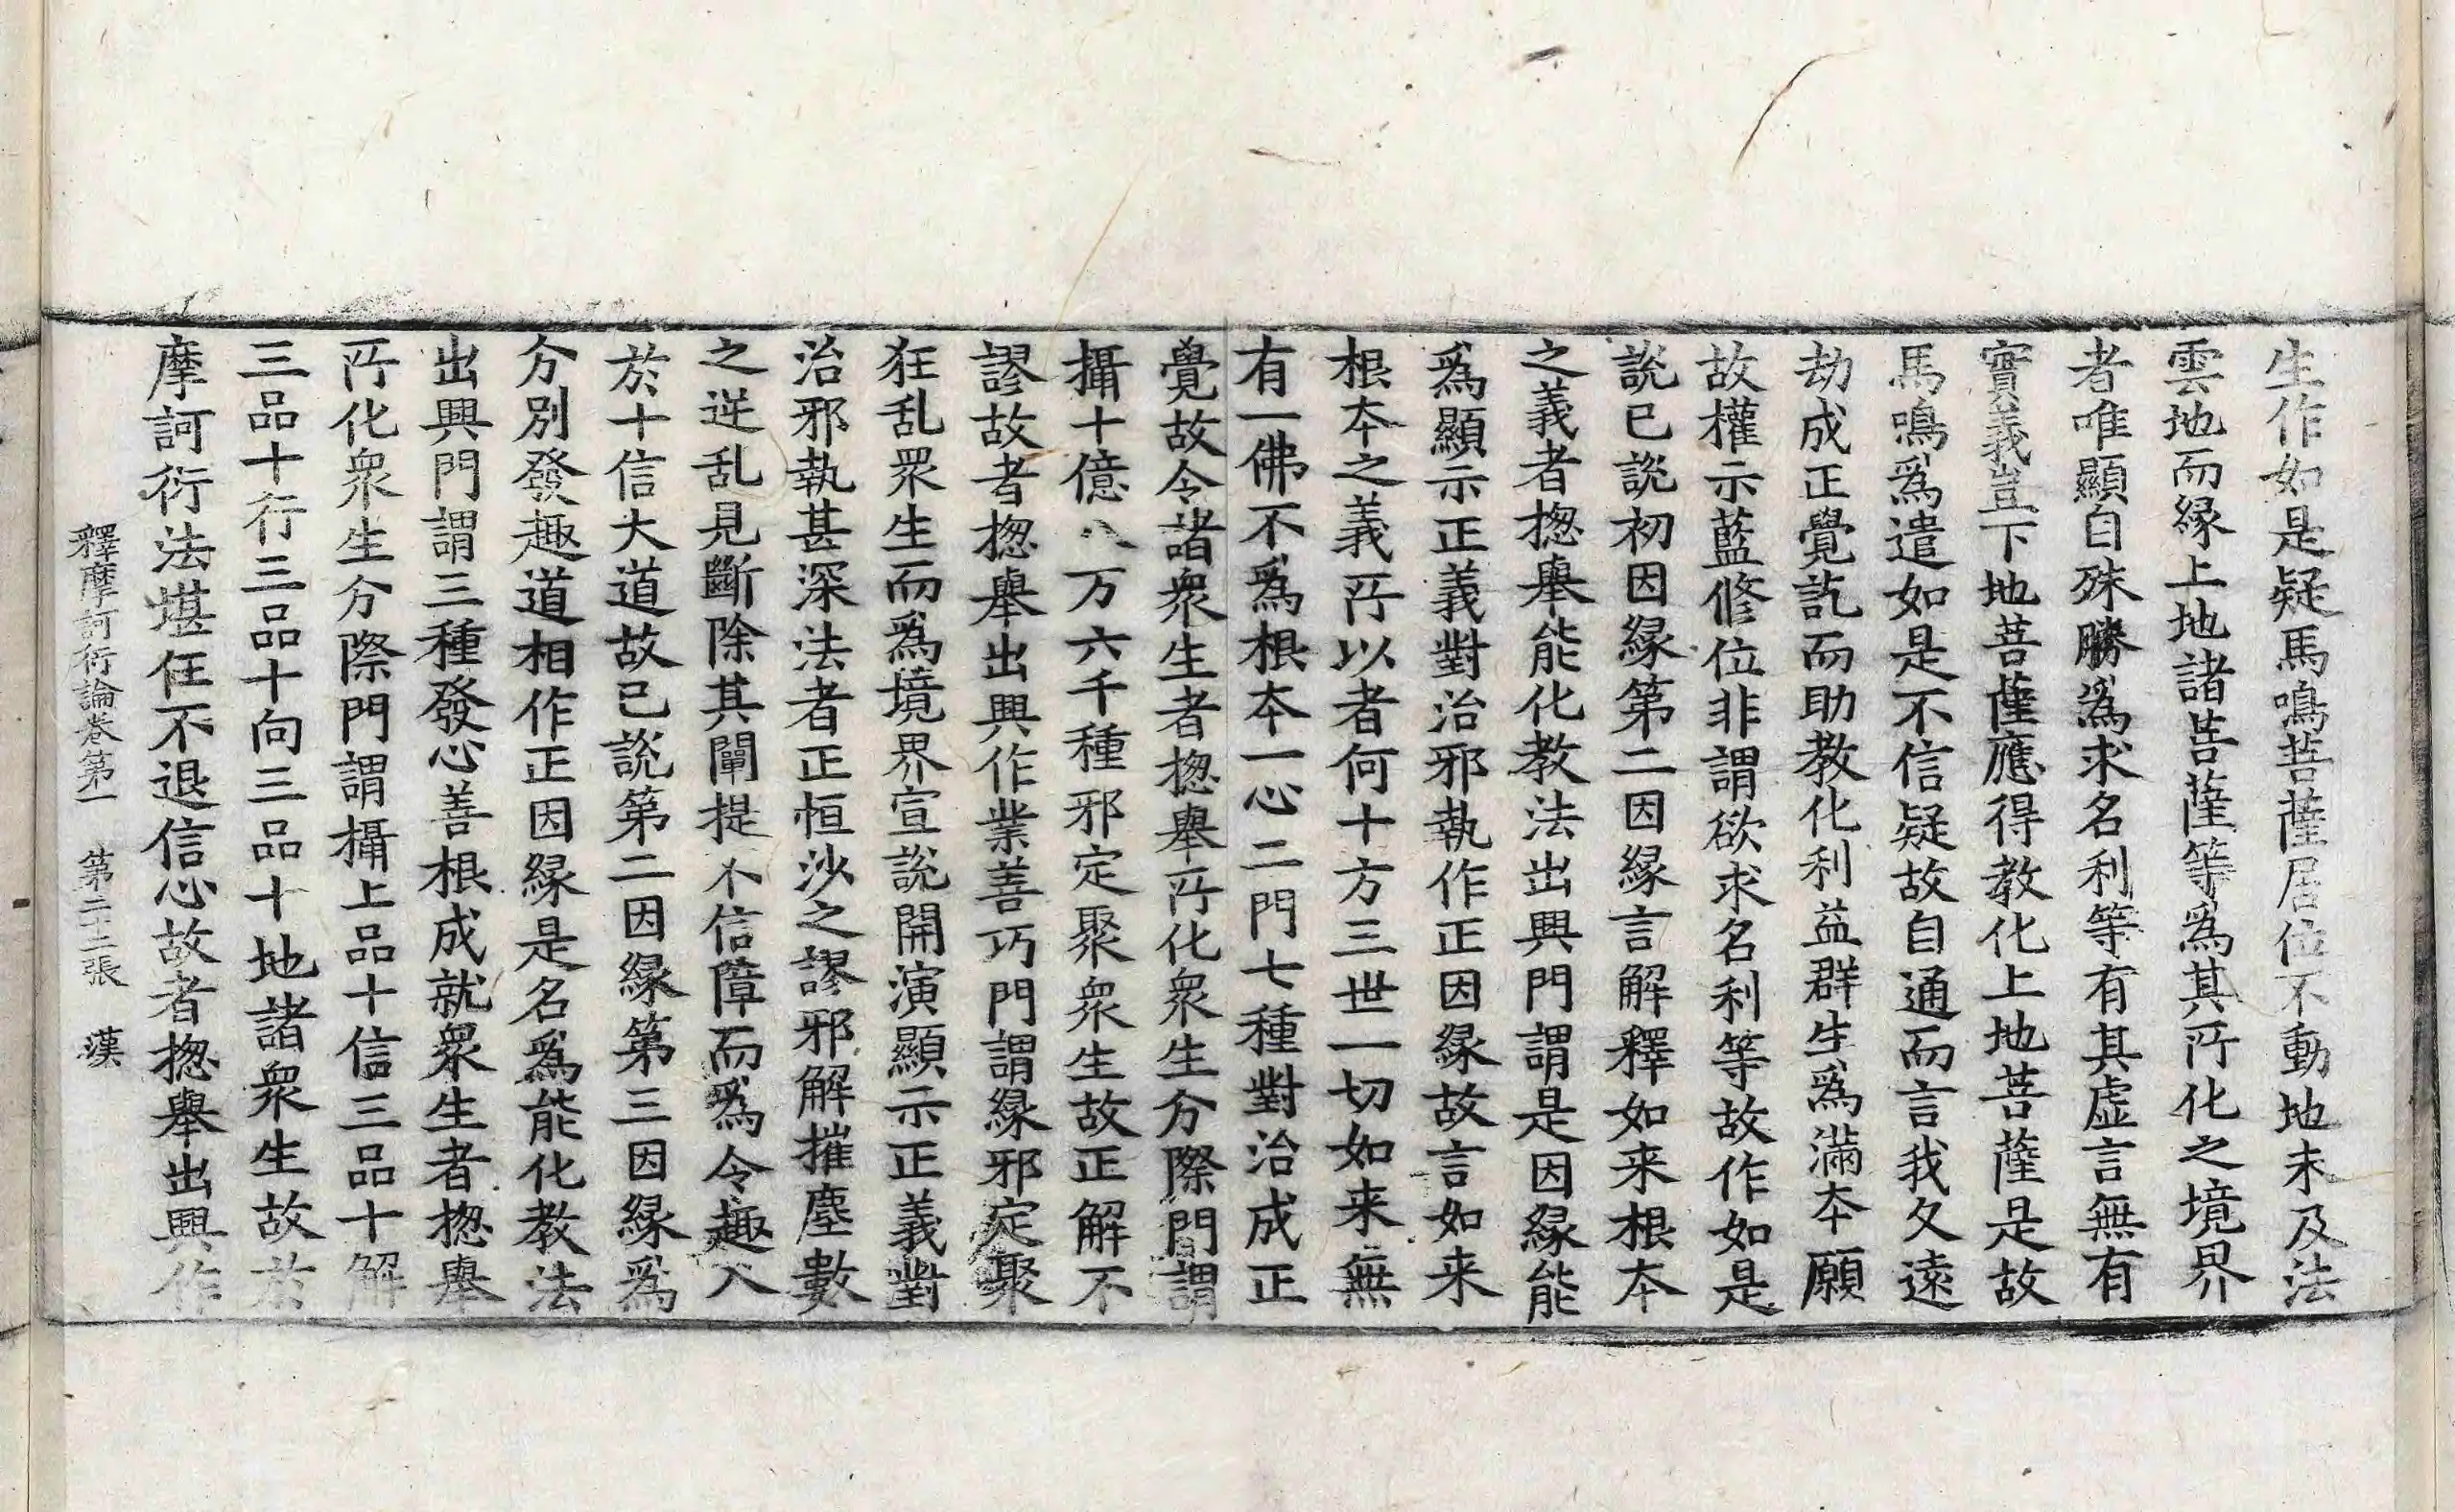 生作如是疑馬鳴菩薩居位不動地未及法
雲地而縁上地諸菩薩等爲其所化之境界
者唯顯自殊勝爲求名利等有其虛言無有
實義豈下地菩薩應得教化上地菩薩是故
馬鳴爲遣如是不信疑故自通而言我久遠
劫成正覺訖而助教化利益群生爲滿本願
故權示藍修位非謂欲求名利等故作如是
說已說初因縁第二因縁言解釋如来根本
之義者揔舉能化教法出興門謂是因縁能
爲顯示正義對治邪執作正因縁故言如来
根本之義所以者何十方三世一切如来無
有一佛不爲根本一心二門七種對治成正
覺故令諸衆生者揔舉所化衆生分際門謂
攝十億八万六千種邪定聚衆生故正解不
謬故者揔舉出興作業善巧門謂縁邪定聚
狂乱衆生而爲境界宣說開演顯示正義對
治邪執甚深法者正恒沙之謬邪解摧塵數
之逆乱見斷除其闡提不信障而爲令趣入
於十信大道故已說第二因縁第三因縁爲
分別發趣道相作正因縁是名爲能化教法
出興門謂三種發心善根成就衆生者揔舉
所化衆生分際門謂攝上品十信三品十解
三品十行三品十向三品十地諸衆生故於
摩訶衍法堪任不退信心故者揔舉出興作
釋摩訶衍論卷第一　第二十二張　漢